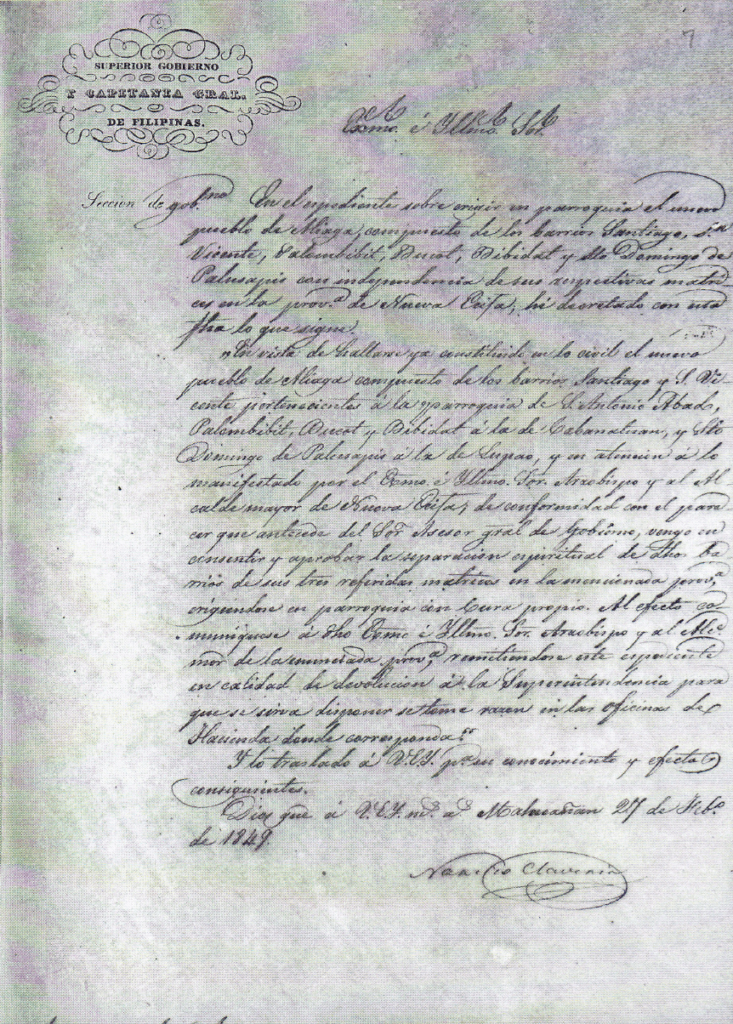 7
SUPERIOR GOBIERNO
Y CAPITANIA GRAL.
DE FILIPINAS.
Exmo. é Yllmo. Sor.
Seccion de gobno.
En el espediente sobre erigir en parroquia el nuevo
pueblo de Aliaga, compuesto de los barrios Santiago, Sn.
Vicente, Palombibit, Bucot, Bibidat y Sto. Domingo de
Palusapis con independencia de sus respectivas matri-
ces en la prova. de Nueva Ecija, hé decretado con esta
fha lo que sigue.
"En vista de hallarse ya constituido en lo civil el nuevo
pueblo de Aliaga compuesto de los barrios Santiago y S. Vi-
cente pertenecientes á la parroquia de S. Antonio Abad,
Palombibit, Bucot y Bibidat á la de Cabanatuan, y Sto
Domingo de Palusapis á la de Lupao, y en atencion á lo
manifestado por el Exmo. é Yllmo. Sor. Arzobispo y al Al-
calde mayor de Nueva Ecija, de conformidad con el pare-
cer que antecede del Sor. Asesor gral de Gobierno, vengo en
consentir y aprobar la separacion espiritual de dhos ba-
rrios de sus tres referidas matrices en la mencionada prova.
erigiendose en parroquia con Cura propio. Al efecto co-
muniquese á dho Exmo. é Yllmo. Sor. Arzobispo y al Alce.
mor de la enunciada prova., remitiendose este espediente
en calidad de devolucion á la Superintendencia para
que se sirva disponer se tome razon en las oficinas de
Hacienda donde corresponda."
Y lo traslado á V.E.Y. pa. su conocimiento y efectos
consiguientes.
Dios gue á V.E.Y. ms. as. Malacañan 27 de Febo.
de 1849.
Narciso Claveria